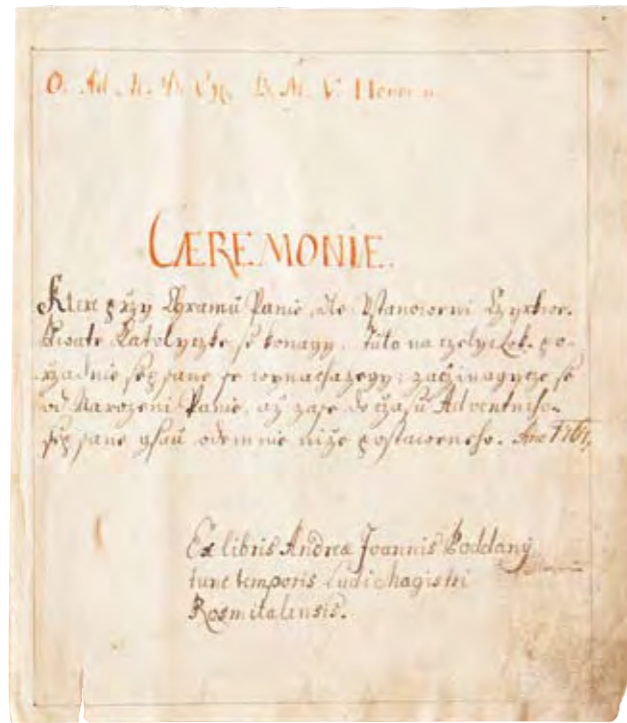 O. Ad M. D. D. M. V. Honorem
CÆREMONIE.
Ktere przy Chramu Panie, dle Vstanoweni Czyrkwe
Swate Katolyczke se konagy, tuto na czely Rok po-
rzadnie sepsane se wynachazegy; zaczinagycze se
od Narozeni Panie, až zase do czasu Adventniho.
sepsane gsau odemnie niže postaweneho. Ano 1761,
Ex libris Andreæ Joannis Poddaný
tunc temporis Ludi Magistri
Rosmitalensis.